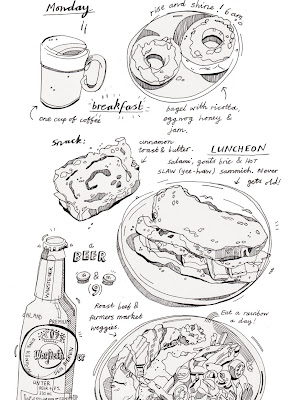 Monday
rise and shine! 6am
one cup of coffee
breakfast
bagel with ricotta,
eggnog honey &
jam.
Snack:
cinnamon
toast & butter.
LUNCHEON
salami, goats brie & HOT
SLAW (yee-haw) sammich. Never
gets old!
a
BEER
&
Roast beef &
farmers market
veggies.
Eat a rainbow
a day!